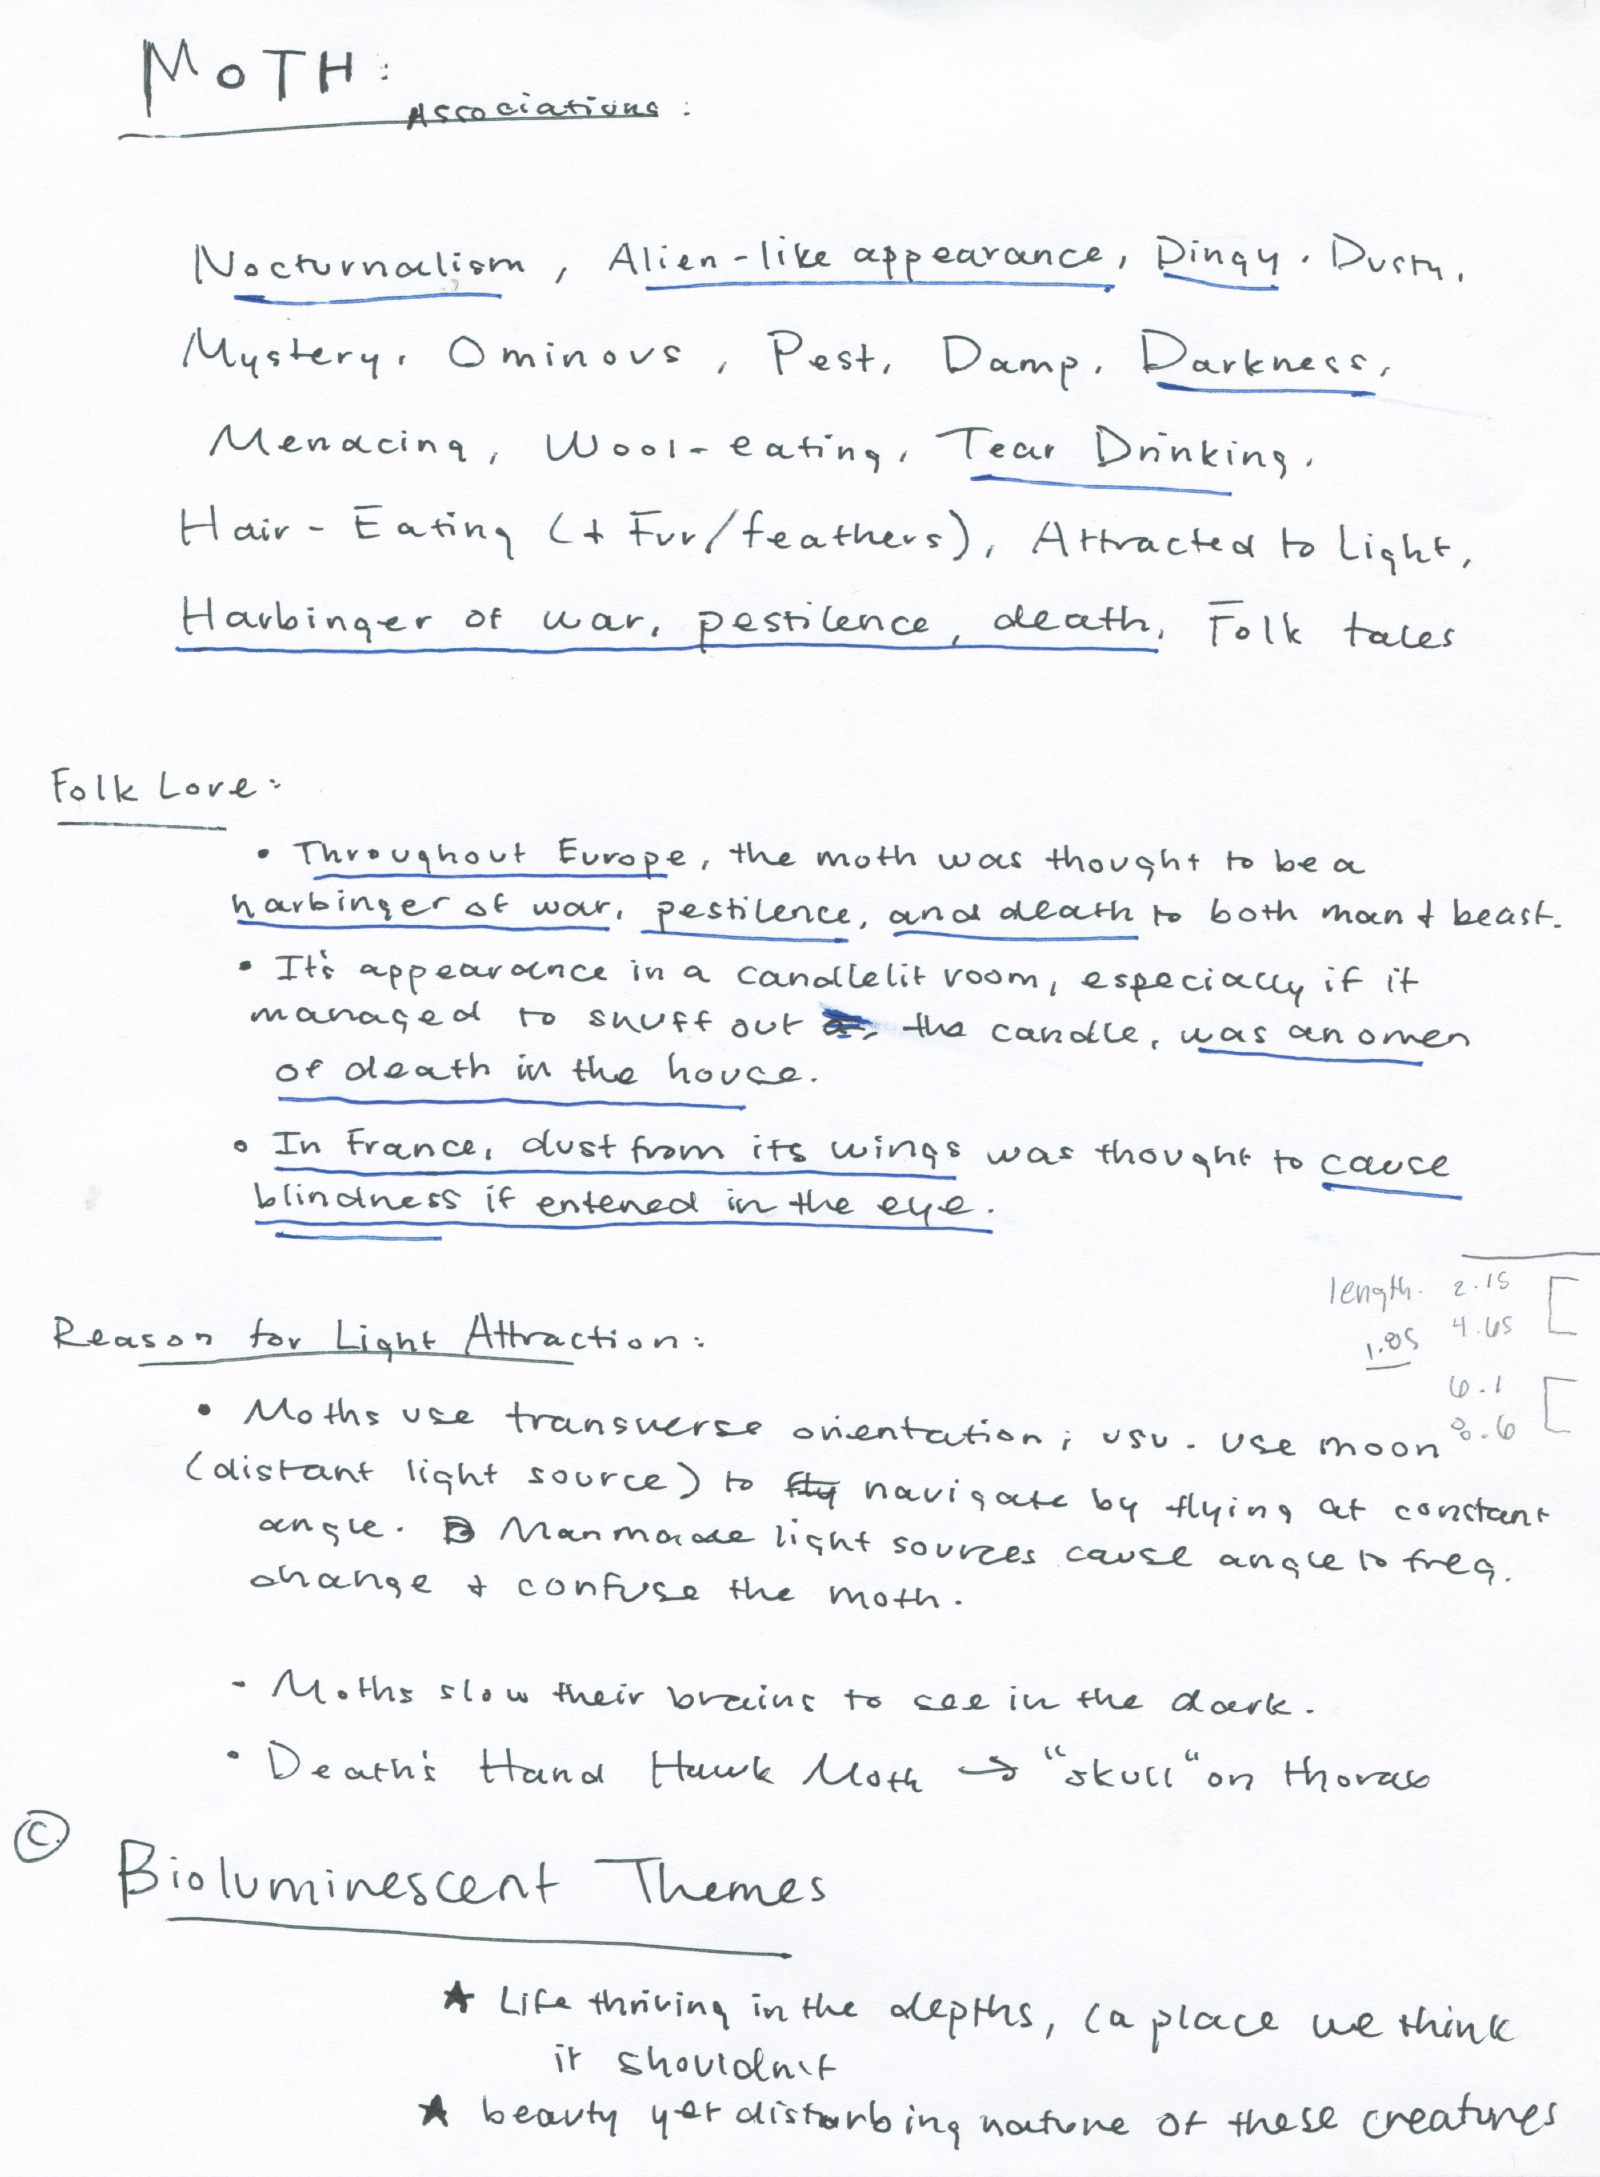 MOTH:
Associations:
Nocturnalism, Alien-like appearance, Dingy. Dusty,
Mystery, Ominous, Pest, Damp, Darkness,
Menacing, Wool-eating, Tear Drinking,
Hair-Eating (+ Fur/feathers), Attracted to Light,
Harbinger of war, pestilence, death, Folk tales
Folk Lore:
• Throughout Europe, the moth was thought to be a
harbinger of war, pestilence, and death to both man + beast.
• It's appearance in a candlelit room, especially if it
managed to snuff out the candle, was an omen
of death in the house.
• In France, dust from its wings was thought to cause
blindness if entered in the eye.
length. 2.15
4.65
1.85
6.1
8.6
Reason for Light Attraction:
• Moths use transverse orientation; usu. use moon
(distant light source) to fly navigate by flying at constant
angle. B Manmade light sources cause angle to freq.
change + confuse the moth.
- Moths slow their brains to see in the dark.
• Death's Hand Hawk Moth → "skull" on thorax
C.
Bioluminescent Themes
★ Life thriving in the depths, (a place we think
it shouldn't
★ beauty yet disturbing nature of these creatures